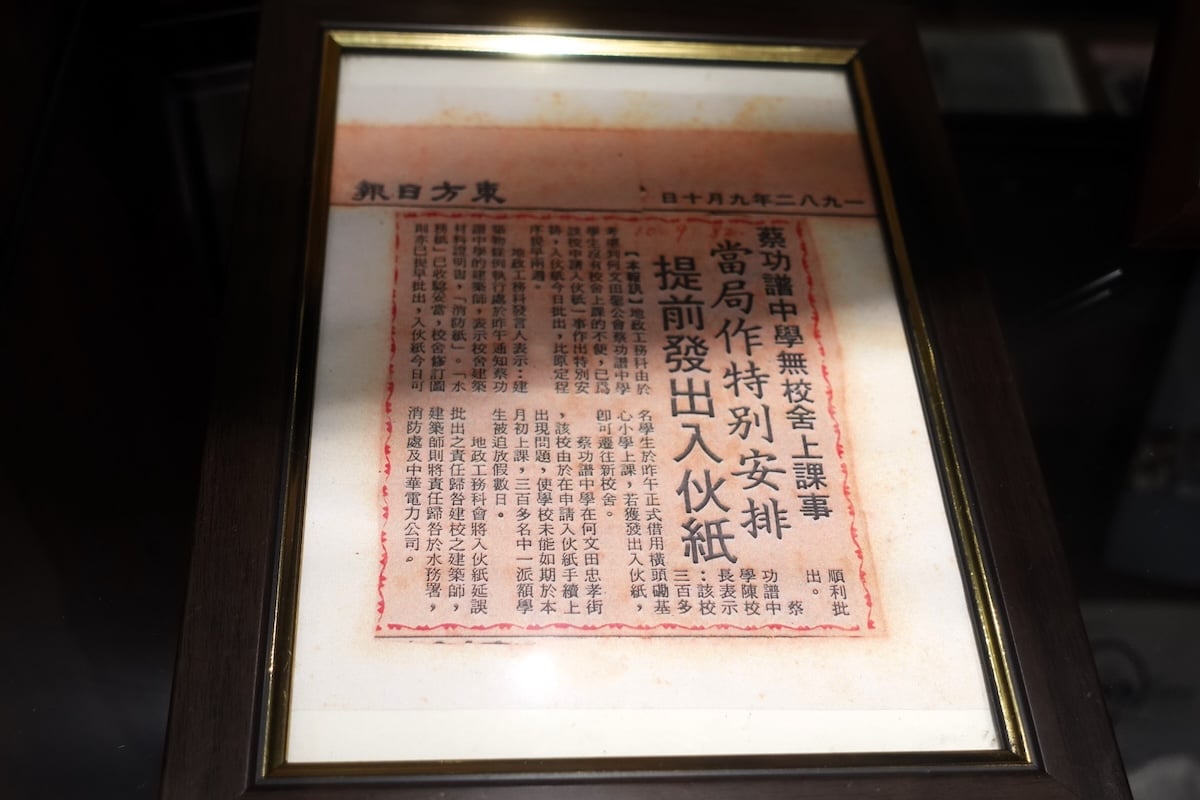 一九八二年九月十日
東方日報
10-9-82
蔡功譜中學無校舍上課事
當局作特別安排
提前發出入伙紙
【本報訊】地政工務科由於
考慮到何文田聖公會蔡功譜中學
學生沒有校舍上課的不便，已爲
該校申請入伙紙一事作出特別安
排，入伙紙今日批出，比原定程
序提早兩週。
地政工務科發言人表示：建
築物條例執行處於昨午通知蔡功
譜中學的建築師，表示校舍建築
材料證明書，「消防紙」。「水
務紙」已收驗妥當，校舍修訂圖
則亦已提早批出，入伙紙今日可
順利批
出。
蔡
功譜中
學陳校
長表示
：該校
三百多
名學生於昨午正式借用橫頭磡基
心小學上課，若獲發出入伙紙，
卽可遷往新校舍。
蔡功譜中學在何文田忠孝街
，該校由於在申請入伙紙手續上
出現問題，使學校未能如期於本
月初上課，三百多名中一派額學
生被迫放假數日。
地政工務科會將入伙紙延誤
批出之責任歸咎建校之建築師，
建築師則將責任歸咎於水務署，
消防處及中華電力公司。